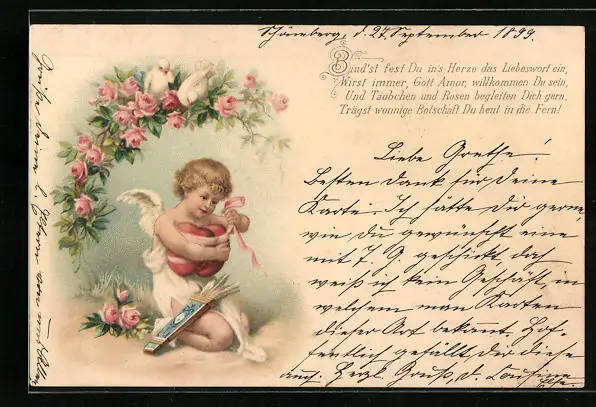 Schömberg, d. 27. September 1899.
Bind'st fest Du in's Herze das Liebeswort ein,
Wirst immer, Gott Amor, willkommen Du sein,
Und Täubchen und Rosen begleiten Dich gern,
Trägst wonnige Botschaft Du heut in die Fern!
Liebe Grethe!
Besten Dank für Deine
Karte. Ich hätte Dir gerne
wie Du gewünscht eine
mit J. G. geschickt doch
weiß ich kein Geschäft, in
welchem man Karten
dieser Art bekomt. Hof-
fentlich gefällt dir diese
auch. Herzl. Gruß, d. Cousine
Else.
Grüße Deine l. Eltern von uns Allen